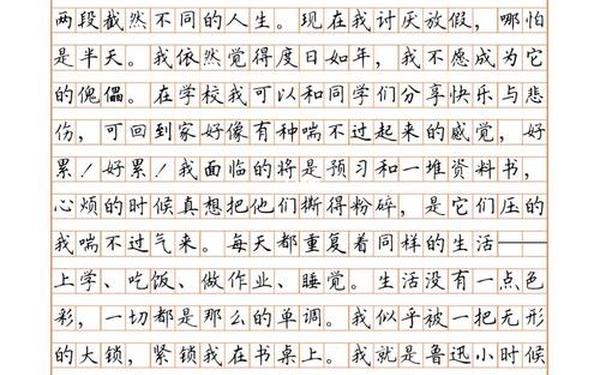 两段截然不同的人生。现在我讨厌放假，哪怕
是半天。我依然觉得度日如年，我不愿成为它
的傀儡。在学校我可以和同学们分享快乐与悲
伤，可回到家好像有种喘不过起来的感觉，好
累！好累！我面临的将是预习和一堆资料书，
心烦的时候真想把他们撕得粉碎，是它们压的
我喘不过气来。每天都重复着同样的生活——
上学、吃饭、做作业、睡觉。生活没有一点色
彩，一切都是那么的单调。我似乎被一把无形
的大锁，紧锁我在书桌上。我就是鲁迅小时候